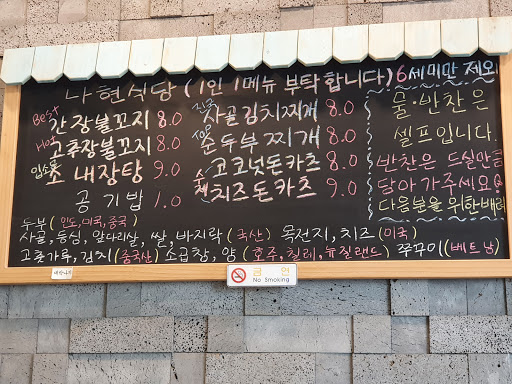 나현식당 (1인 1메뉴 부탁합니다) 6세미만 제외
Best 간장불꼬지 8.0
Hot 고추장불꼬지 8.0
소내장탕 9.0
공기밥 1.0
사골김치찌개 8.0
Top 순두부찌개 8.0
수제 코코넛돈카츠 8.0
치즈돈카츠 9.0
물·반찬은
셀프입니다.
반찬은 드실만큼
담아가주세요!
다음분을 위한배려
두부 (인도,미국,중국)
사골, 등심, 앞다리살, 쌀, 바지락 (국산) 목전지, 치즈 (미국)
고춧가루, 김치 (중국산) 소곱창, 양 (호주, 칠레, 뉴질랜드) 쭈꾸미 (베트남)
금연
No Smoking